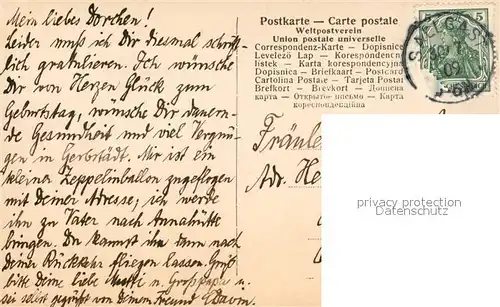 Mein liebes Dorchen!
Leider muß ich Dir diesmal schrift-
lich gratulieren. Ich wünsche
dir von Herzen Glück zum
Geburtstag, wünsche Dir dauern-
de Gesundheit und viel Vergnü-
gen in Gerbstädt. Mir ist ein
kleiner Zeppelinballon zugeflogen
mit Deiner Adresse, ich werde
ihn zu Vater nach Annahütte
bringen. Du kannst ihn dann nach
Deiner Rückkehr fliegen lassen. Grüß
bitte Deine liebe Mutti u. Großpapa u.
sei selbst gegrüßt von Deinem Freund
Postkarte — Carte postale
Weltpostverein
Union postale universelle
Correspondenz-Karte — Dopisnice
Levelező Lap — Korespondenčn
lístek — Karta korespondencyjna
Dopisnica — Briefkaart — Postcard
Cartolina Postale — Tarjeta Postal
Brefkort — Brevkort — Дописна
карта — Открытое письмо — Карта
кореспондеційна
5
09
Fräulei
Adr. He
privacy protection
Datenschutz